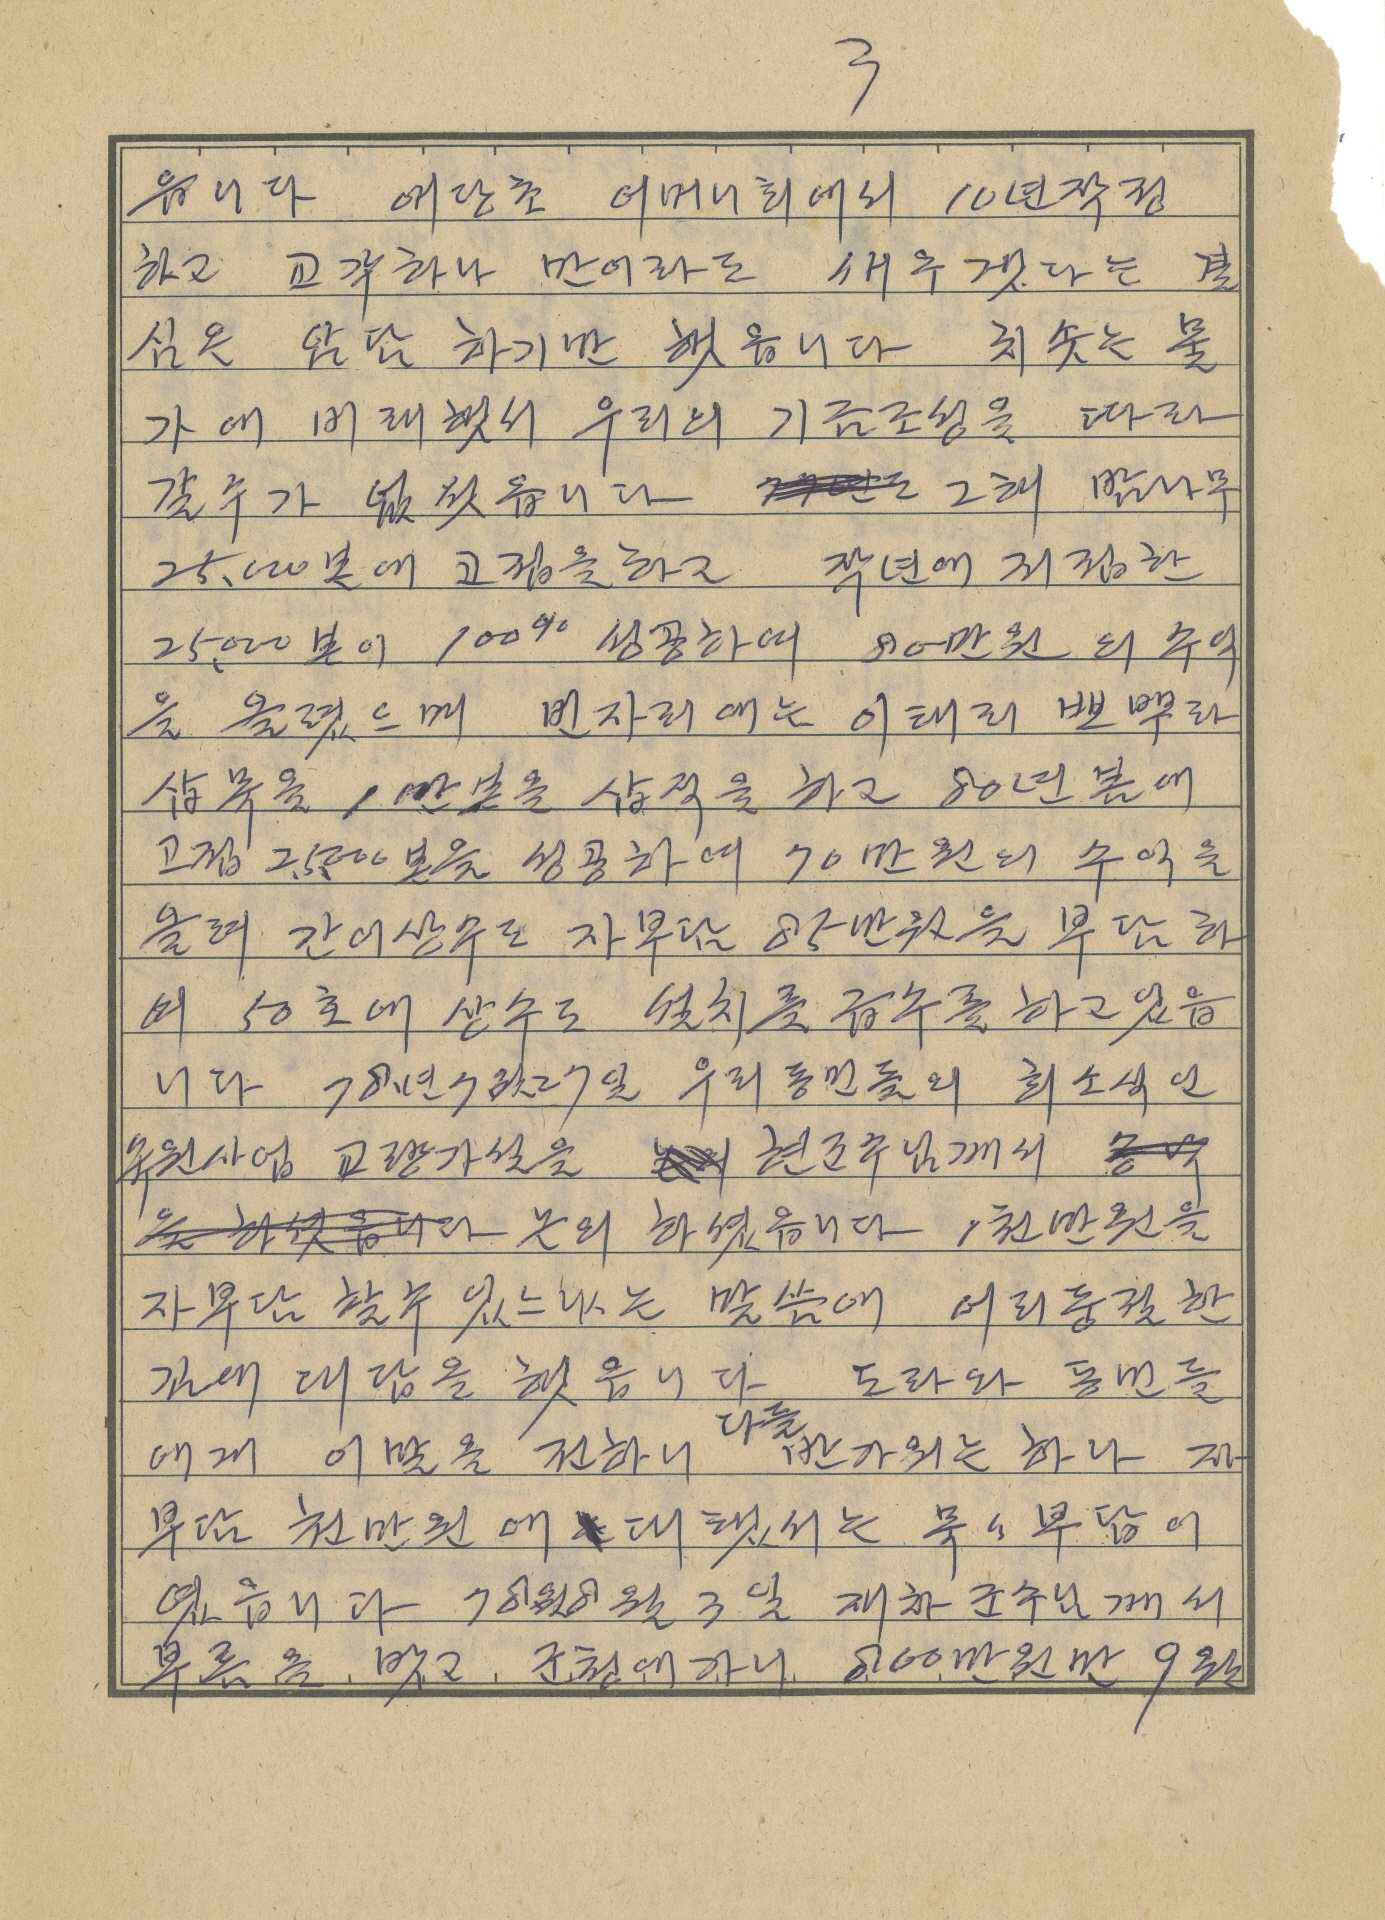 3
읍니다 애당초 어머니회에서 10년작정
하고 교각하나 만이라도 새우겟다는 결
심은 암담 하기만 햇읍니다 치솟는 물
가에 비래햇서 우리의 기금조성을 따라
갈수가 없섯읍니다 그해 밤나무
25,000본에 고접을하고 작년애 저접한
25,000본이 100% 성공하여 80만원 의 수익
을 올렸으며 빈자리애는 이태리 뽀뿌라
삽목을 1만본을 삽적을 하고 80년봄애
고접 25,000본을 성공하여 70만원의 수익을
올려 간이상수도 자부담 85만원을 부담하
여 50호애 상수도 설치를 급수를 하고있읍
니다 78년7월27일 우리동민들의 회소색인
숙원사업 교량가설을 현군수님깨서
논의 하셨읍니다 1천만원을
자부담 할수 있느냐는 말씀애 어리둥절한
김애 대답을 햇읍니다 도라와 동민들
애개 이말을 전하니 다들 반가워는하나 자
부담 천만원 애 대했서는 묵묵부답이
였읍니다 78년8월3일 재차 군수님깨서
부름을 밧고 군청애가니 800만원만 9월